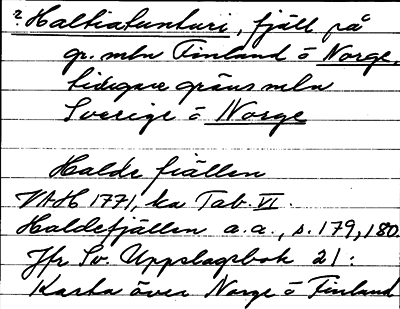 ? Haltiatunturi, fjäll på
gr. mln Finland o Norge,
tidigare gräns mln
Sverige o Norge
Halde fiällen
VAH 1771, ka Tab. VI.
Haldefjällen a.a., s. 179, 180
Jfr Sv. Uppslagsbok 21:
Karta över Norge o Finland